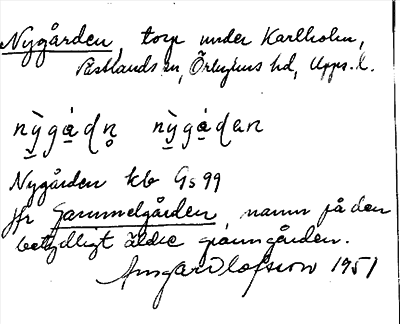 Nygården, torp under Karlholm,
Västlands sn, Örbyhus hd, Upps. l.
nỳ̠gá̠dn̥ nỳ̠gá̠dan
Nygården kb Gs 99
jfr Gammelgården, namn på den
betydligt äldre granngården.
Ansgar Olofsson 1951